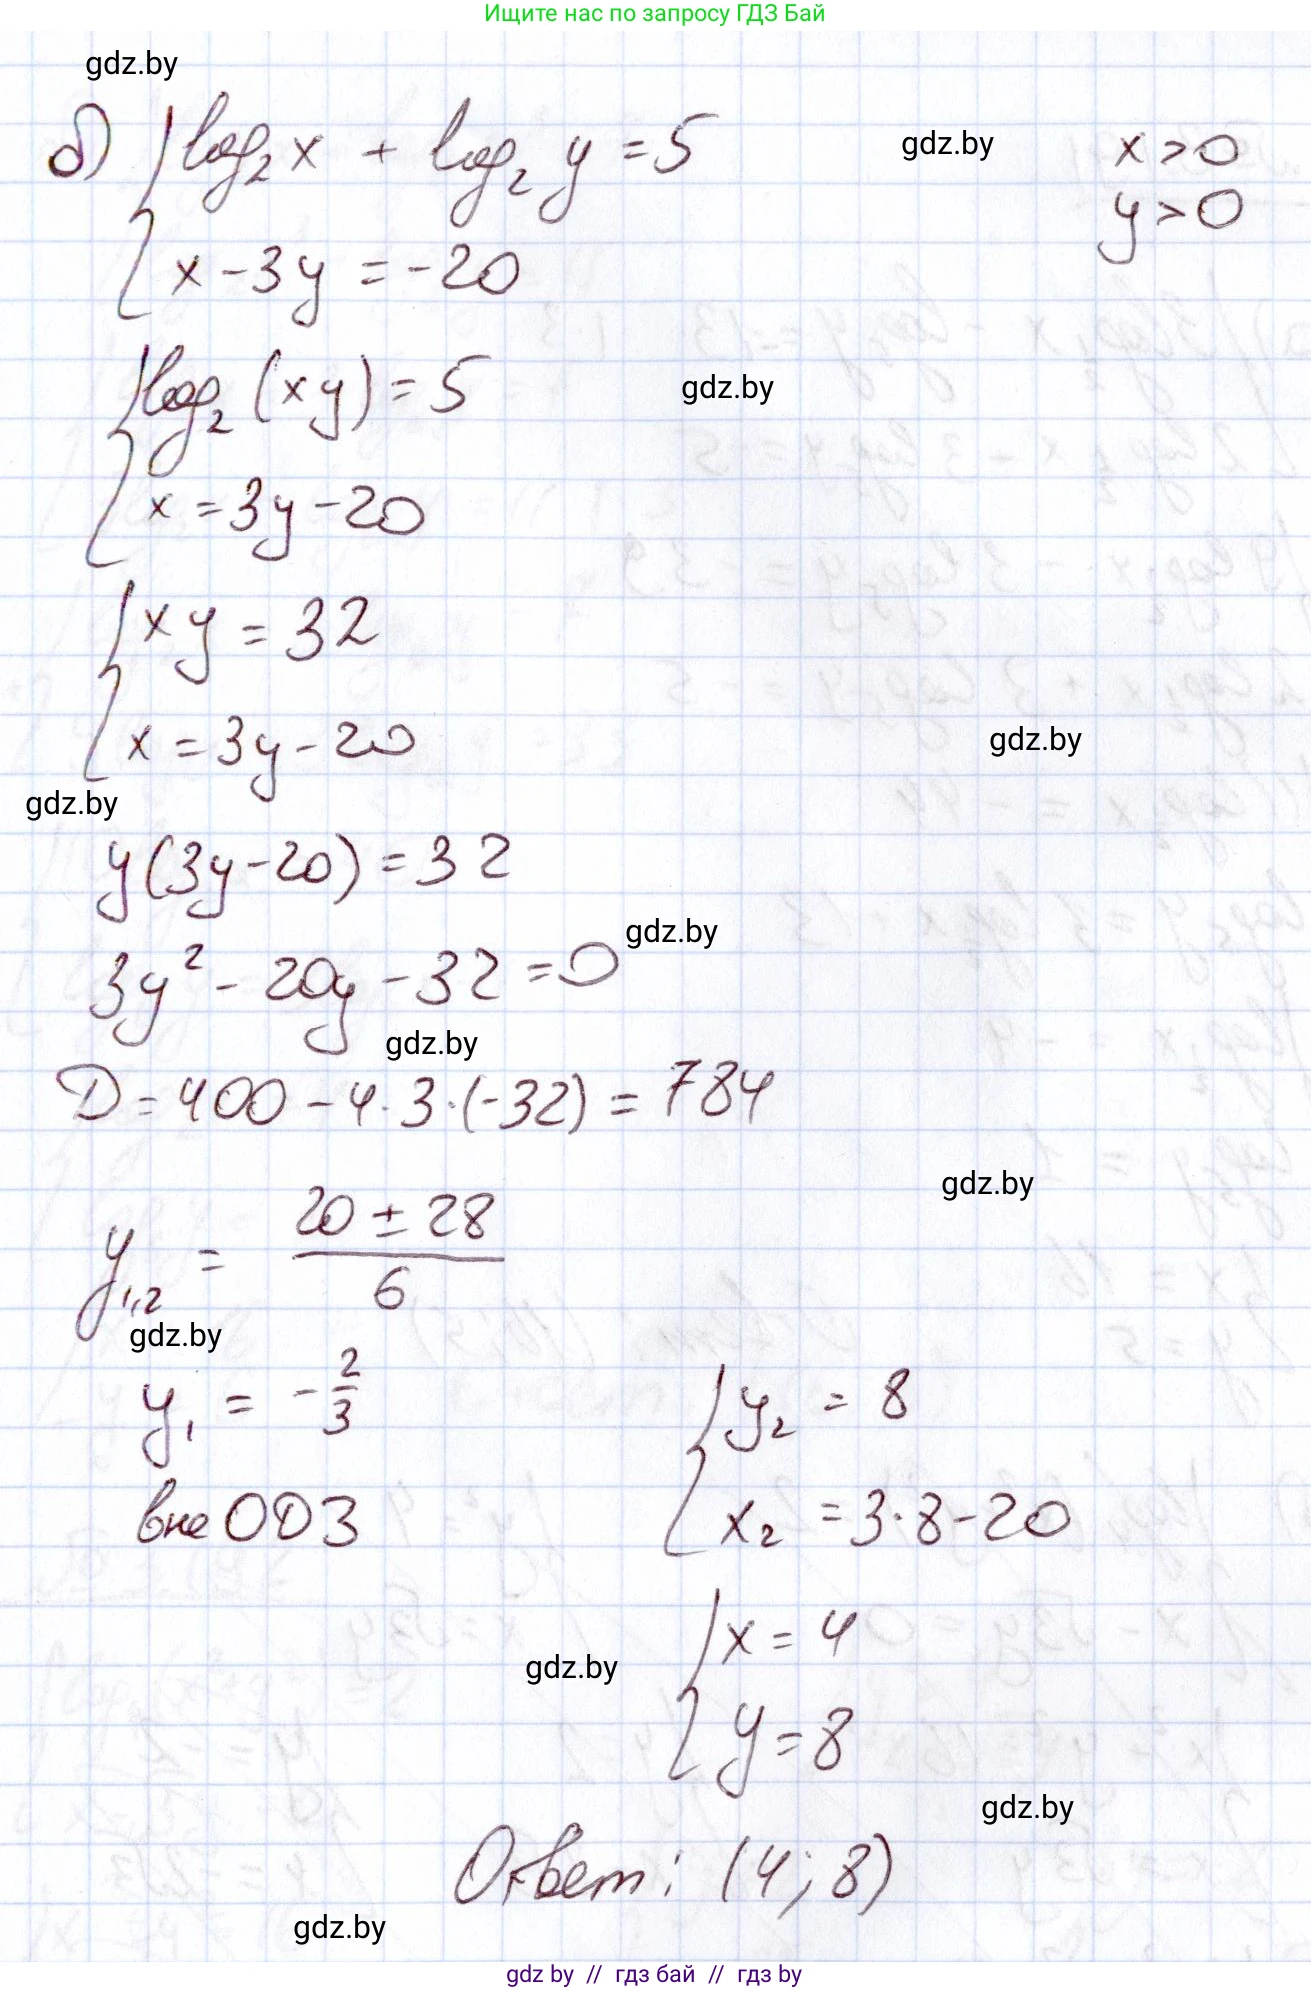 Ищите нас по запросу ГДЗ Бай
gdz.by
б) { log₂ x + log₂ y = 5
gdz.by
x > 0
y > 0
x - 3y = -20
{ log₂ (xy) = 5
gdz.by
x = 3y - 20
{ xy = 32
x = 3y - 20
gdz.by
gdz.by
y(3y - 20) = 32
gdz.by
3y² - 20y - 32 = 0
gdz.by
D = 400 - 4·3·(-32) = 784
gdz.by
y₁,₂ = (20 ± 28)/6
gdz.by
y₁ = -2/3
вне ОДЗ
{ y₂ = 8
x₂ = 3·8 - 20
{ x = 4
gdz.by
y = 8
gdz.by
Ответ: (4; 8)
gdz.by
gdz by // гдз бай // гдз by